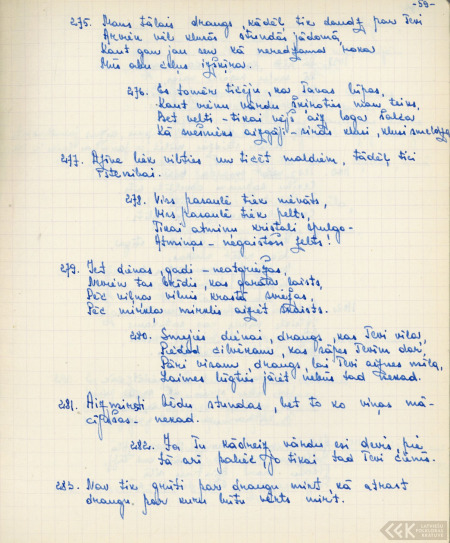 -59-
275. Mans tālais draugs, kādēļ tik daudz par Tevi
Arvien vēl klusās stundās jādomā,
Kaut gan jau sen kā neredzama roka
Mūs abu ceļus izšķīra.
276. Es tomēr ticēju, ka Tavas lūpas,
Kaut vienu vārdu šķiroties man teiks,
Bet velti - tikai vējš aiz loga šalca
Kā svešnieks aizgāji - sirds klusi, klusi smeldza
277. Dzīve liek vilties un ticēt maldiem, tādēļ tici
Īstenībai.
278. Virs pasaulē tiek nievāts,
Virs pasaulē tiek pelts,
Tikai atmiņu kristāli spulgo -
Atmiņas - negaistošs zelts!
279. Iet dienas, gadi - neatgriežas,
Arvien tas brīdis, kas garām laists,
Pēc viļņa vilnis krastā sniežas,
Pēc mirkļa, mirklis aiziet skaists.
280. Smejies dienai, draugs, kas Tevi viļas,
Piedod cilvēkam, kas sāpes Tevim dar,
Pāri visam, draugs, lai Tevi aiznes mīla,
Laimes lūgties jāiet nebūs tad nekad.
281. Aizmirsti bēdu stundas, bet to ko viņas mā-
cījušas - nekad.
282. Ja Tu kādreiz vārdu esi devis, pie
tā arī paliec, jo tikai tad Tevi cienīs.
283. Nav tik grūti par draugu mirt, kā atrast
draugu par kuru būtu vērts mirt.
LATVIEŠU
FOLKLORAS
KRĀTUVE